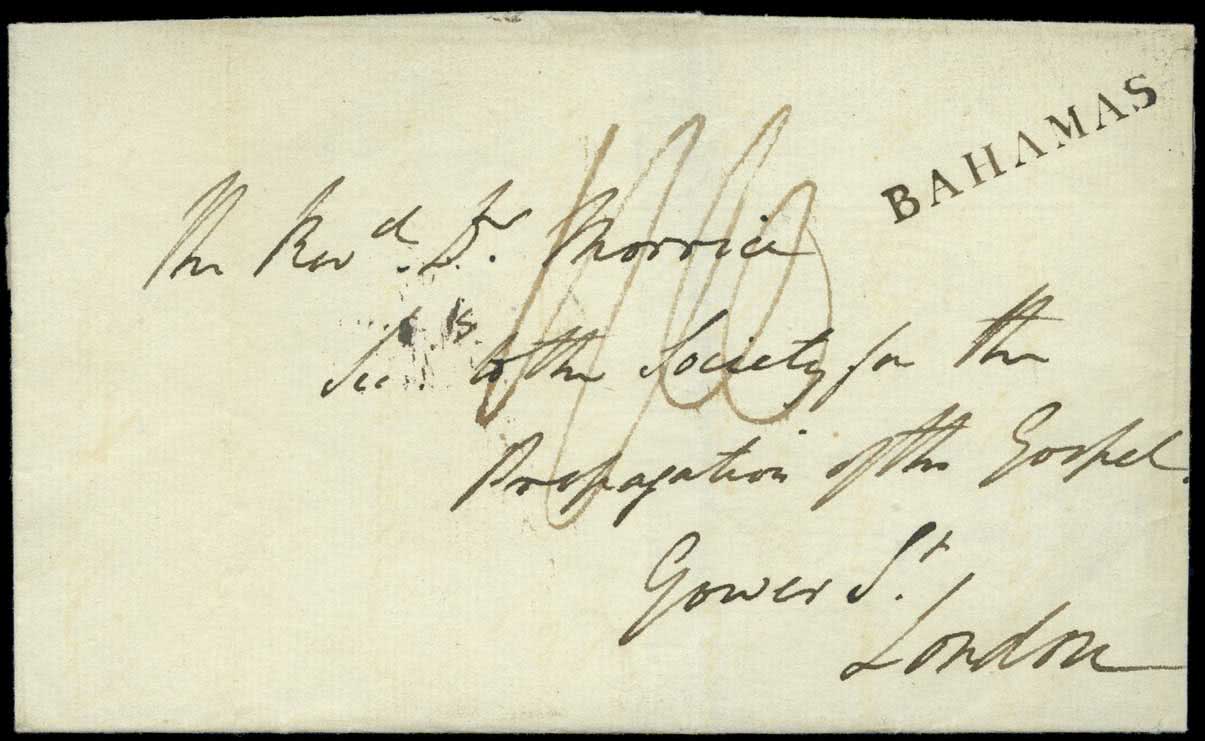 BAHAMAS
The Revd. Dr. Morrice
Secy. to the Society for the
Propagation of the Gospel.
Gower St.
London